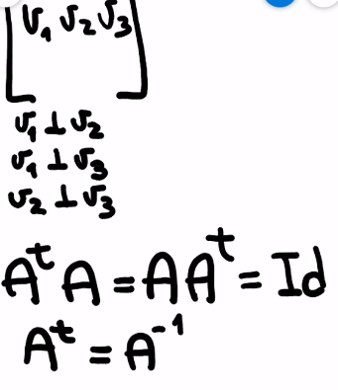 [v₁ v₂ v₃]
v₁ ⊥ v₂
v₁ ⊥ v₃
v₂ ⊥ v₃
Aᵗ A = A Aᵗ = Id
Aᵗ = A⁻¹